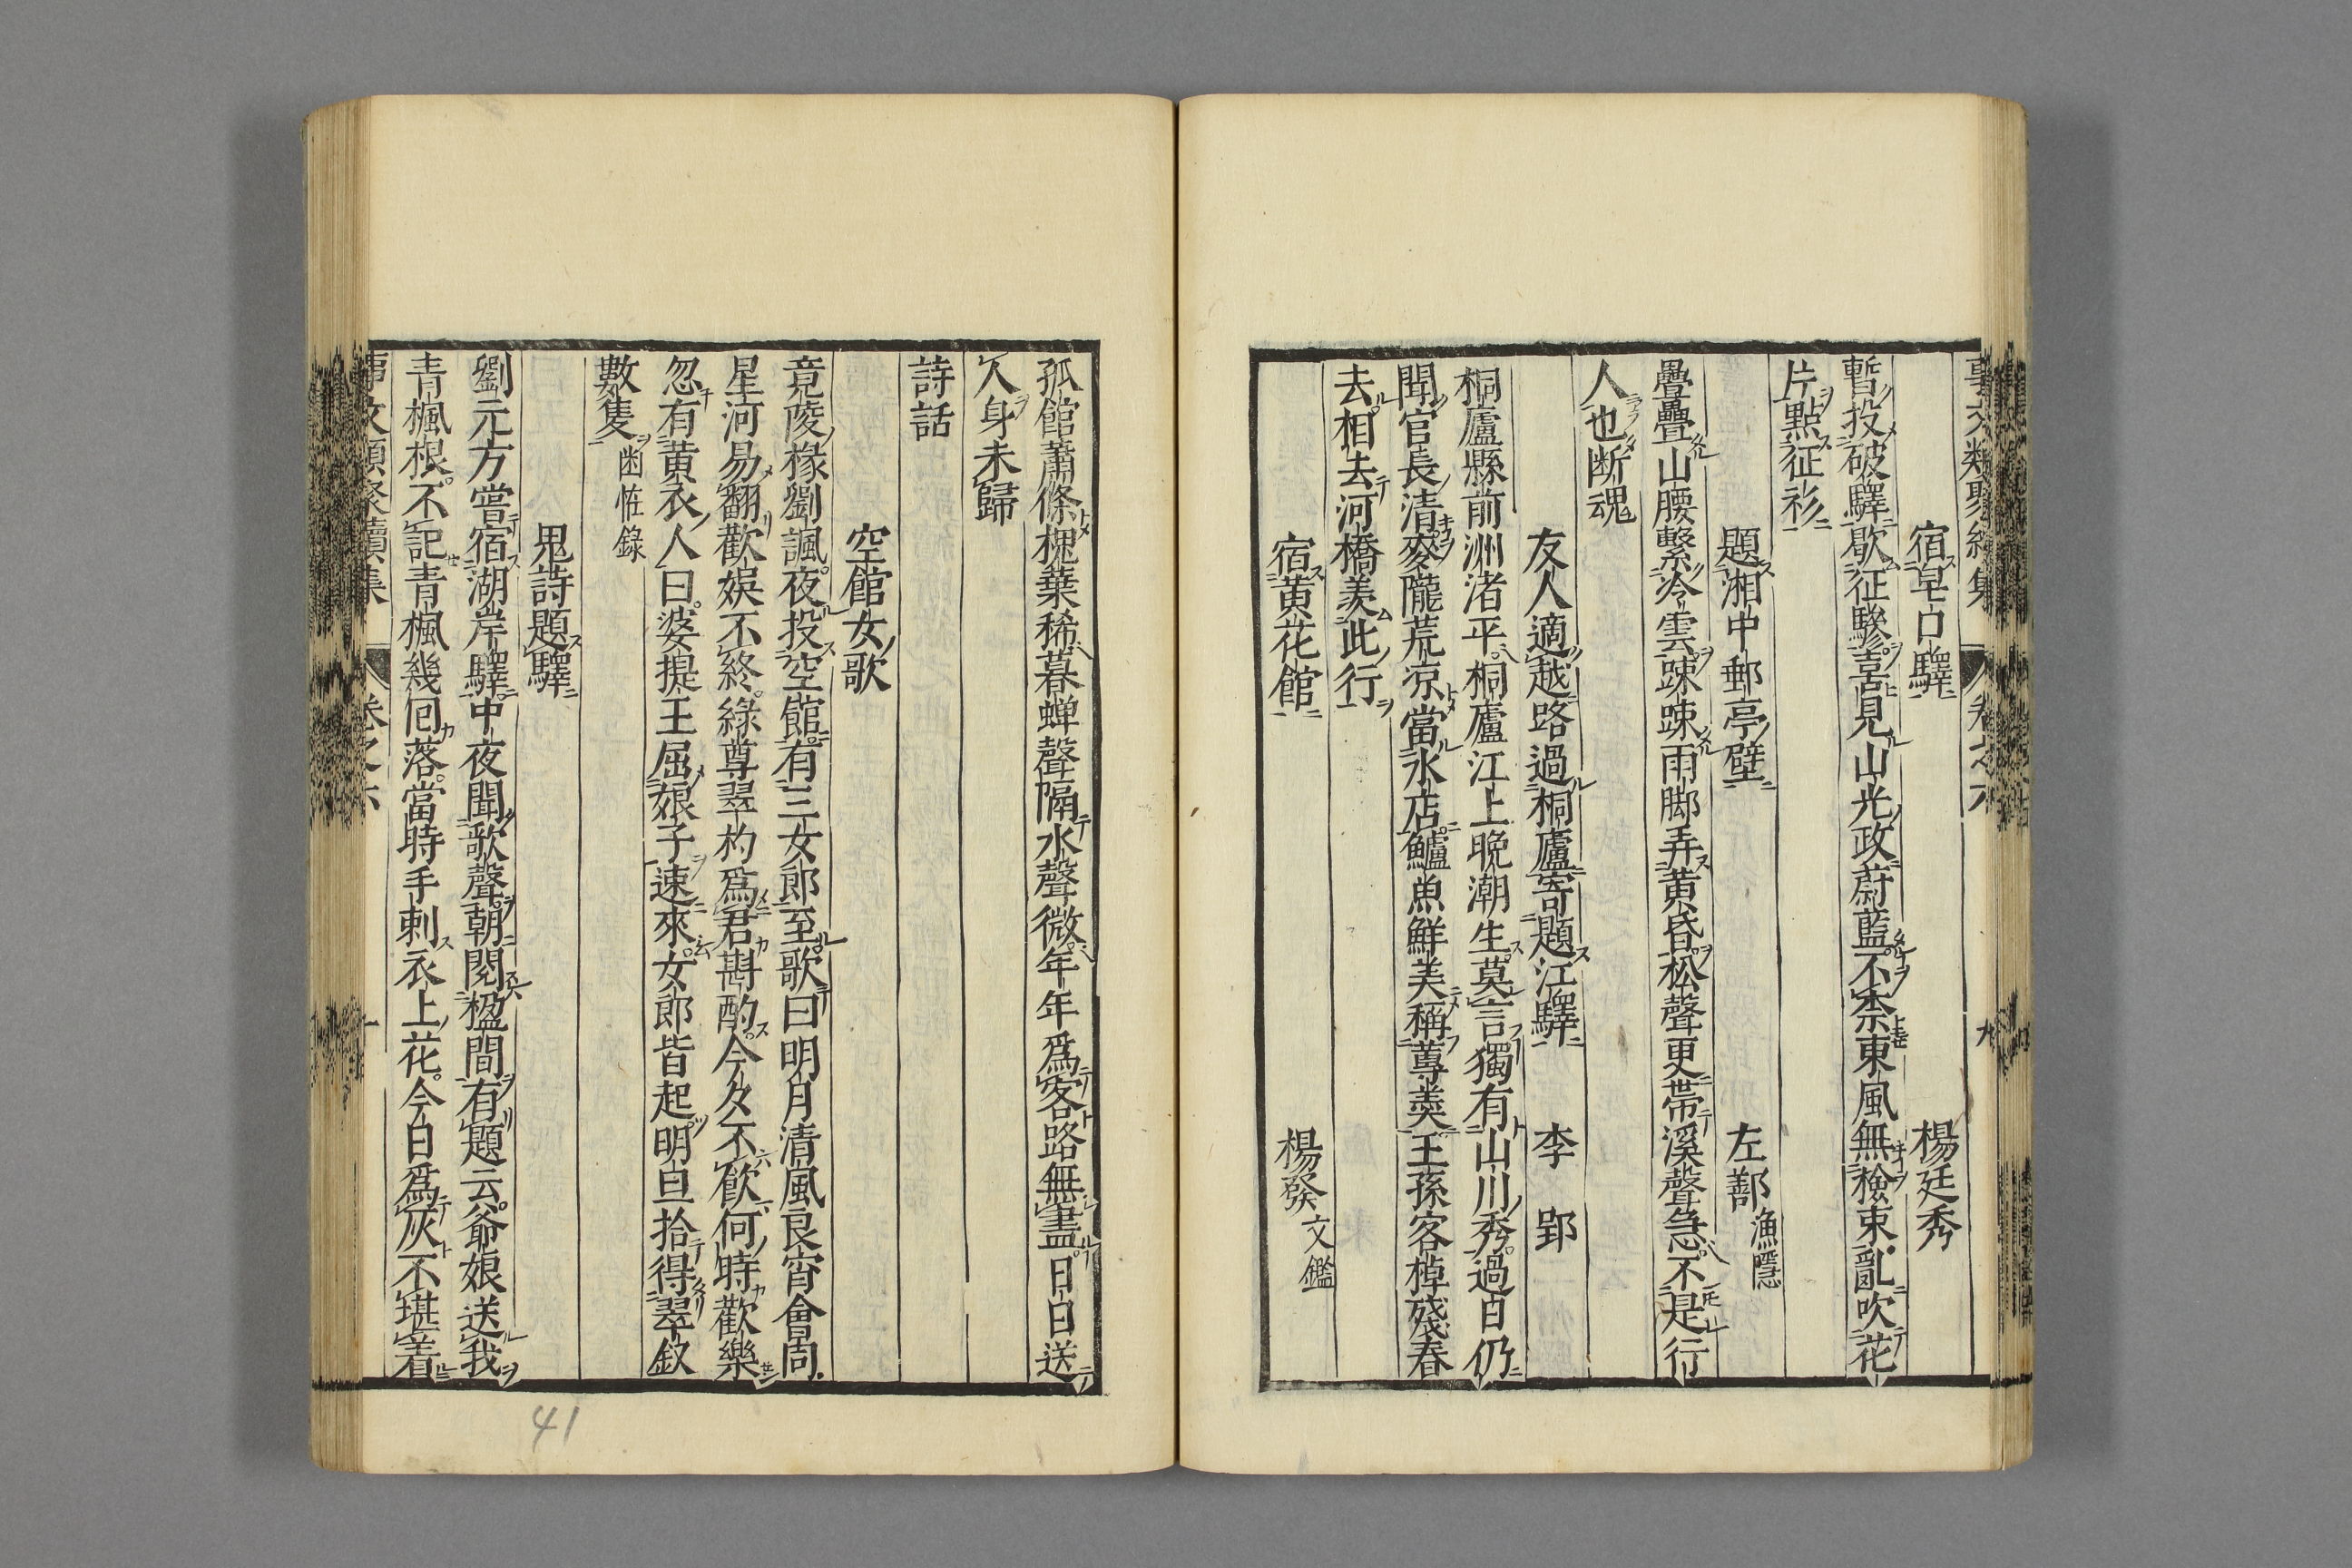 宿皂口驛　楊廷秀
暫投破驛歇征驂喜見山光政蔚藍不柰東風無檢束亂吹花
片點征衫
題湘中郵亭壁　左鄯漁隱
疊疊山腰繫冷雲踈踈雨脚弄黄昏松聲更帶溪聲急不是行
人也断魂
友人適越路過桐廬寄題江驛　李郢
桐廬縣前洲渚平桐廬江上晩潮生莫言獨有山川秀過日仍
聞官長清麥隴荒凉當水店鱸魚鮮美稱蓴羮王孫客棹殘春
去相去河橋羨此行
宿黄花館　楊發文鑑
孤館蕭條槐葉稀暮蝉聲隔水聲微年年爲客路無盡日日送
人身未歸
詩話
空館女歌
竟陵椽劉諷夜投空館有三女郎至歌曰明月清風良宵會同
星河易翻歡娯不終綠尊翠杓爲君斟酌今夕不飲何時歡樂
忽有黄衣人曰婆提王屈娘子速來女郎皆起明旦拾得翠釵
數隻幽恠錄
鬼詩題驛
劉元方嘗宿湖岸驛中夜聞歌聲朝閱楹間有題云爺娘送我
青楓根不記青楓幾囘落當時手刺衣上花今日爲灰不堪着
41